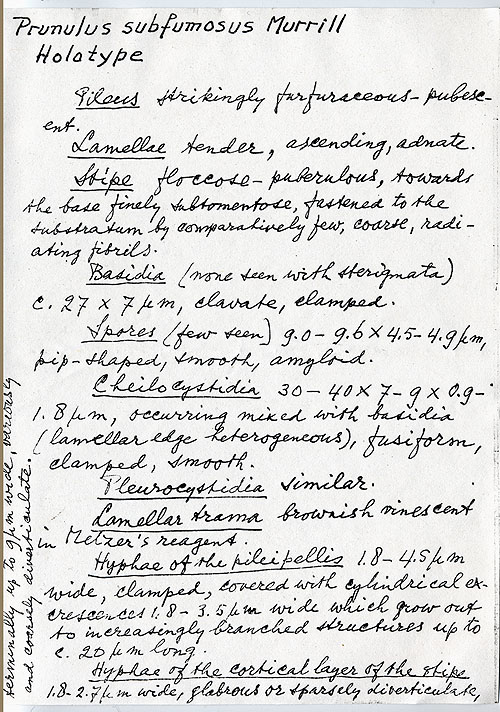 Prunulus subfumosus Murrill
Holotype
Pileus strikingly furfuraceous-pubesc-
ent.
Lamellae tender, ascending, adnate.
Stipe floccose-puberulous, towards
the base finely subtomentose, fastened to the
substratum by comparatively few, coarse, radi-
ating fibrils.
Basidia (none seen with sterigmata)
c. 27 x 7 µm, clavate, clamped.
Spores (few seen) 9.0-9.6 x 4.5-4.9 µm,
pip-shaped, smooth, amyloid.
Cheilocystidia 30-40 x 7-9 x 0.9-
1.8 µm, occurring mixed with basidia
(lamellar edge heterogeneous), fusiform,
clamped, smooth.
Pleurocystidia similar.
Lamellar trama brownish vinescent
in Melzer's reagent.
Hyphae of the pileipellis 1.8-4.5 µm
wide, clamped, covered with cylindrical ex-
crescences 1.8-3.5 µm wide which grow out
to increasingly branched structures up to
c. 20 µm long.
Hyphae of the cortical layer of the stipe
1.8-2.7 µm wide, glabrous or sparsely diverticulate,
terminally up to 9 µm wide, variously
and coarsely diverticulate.